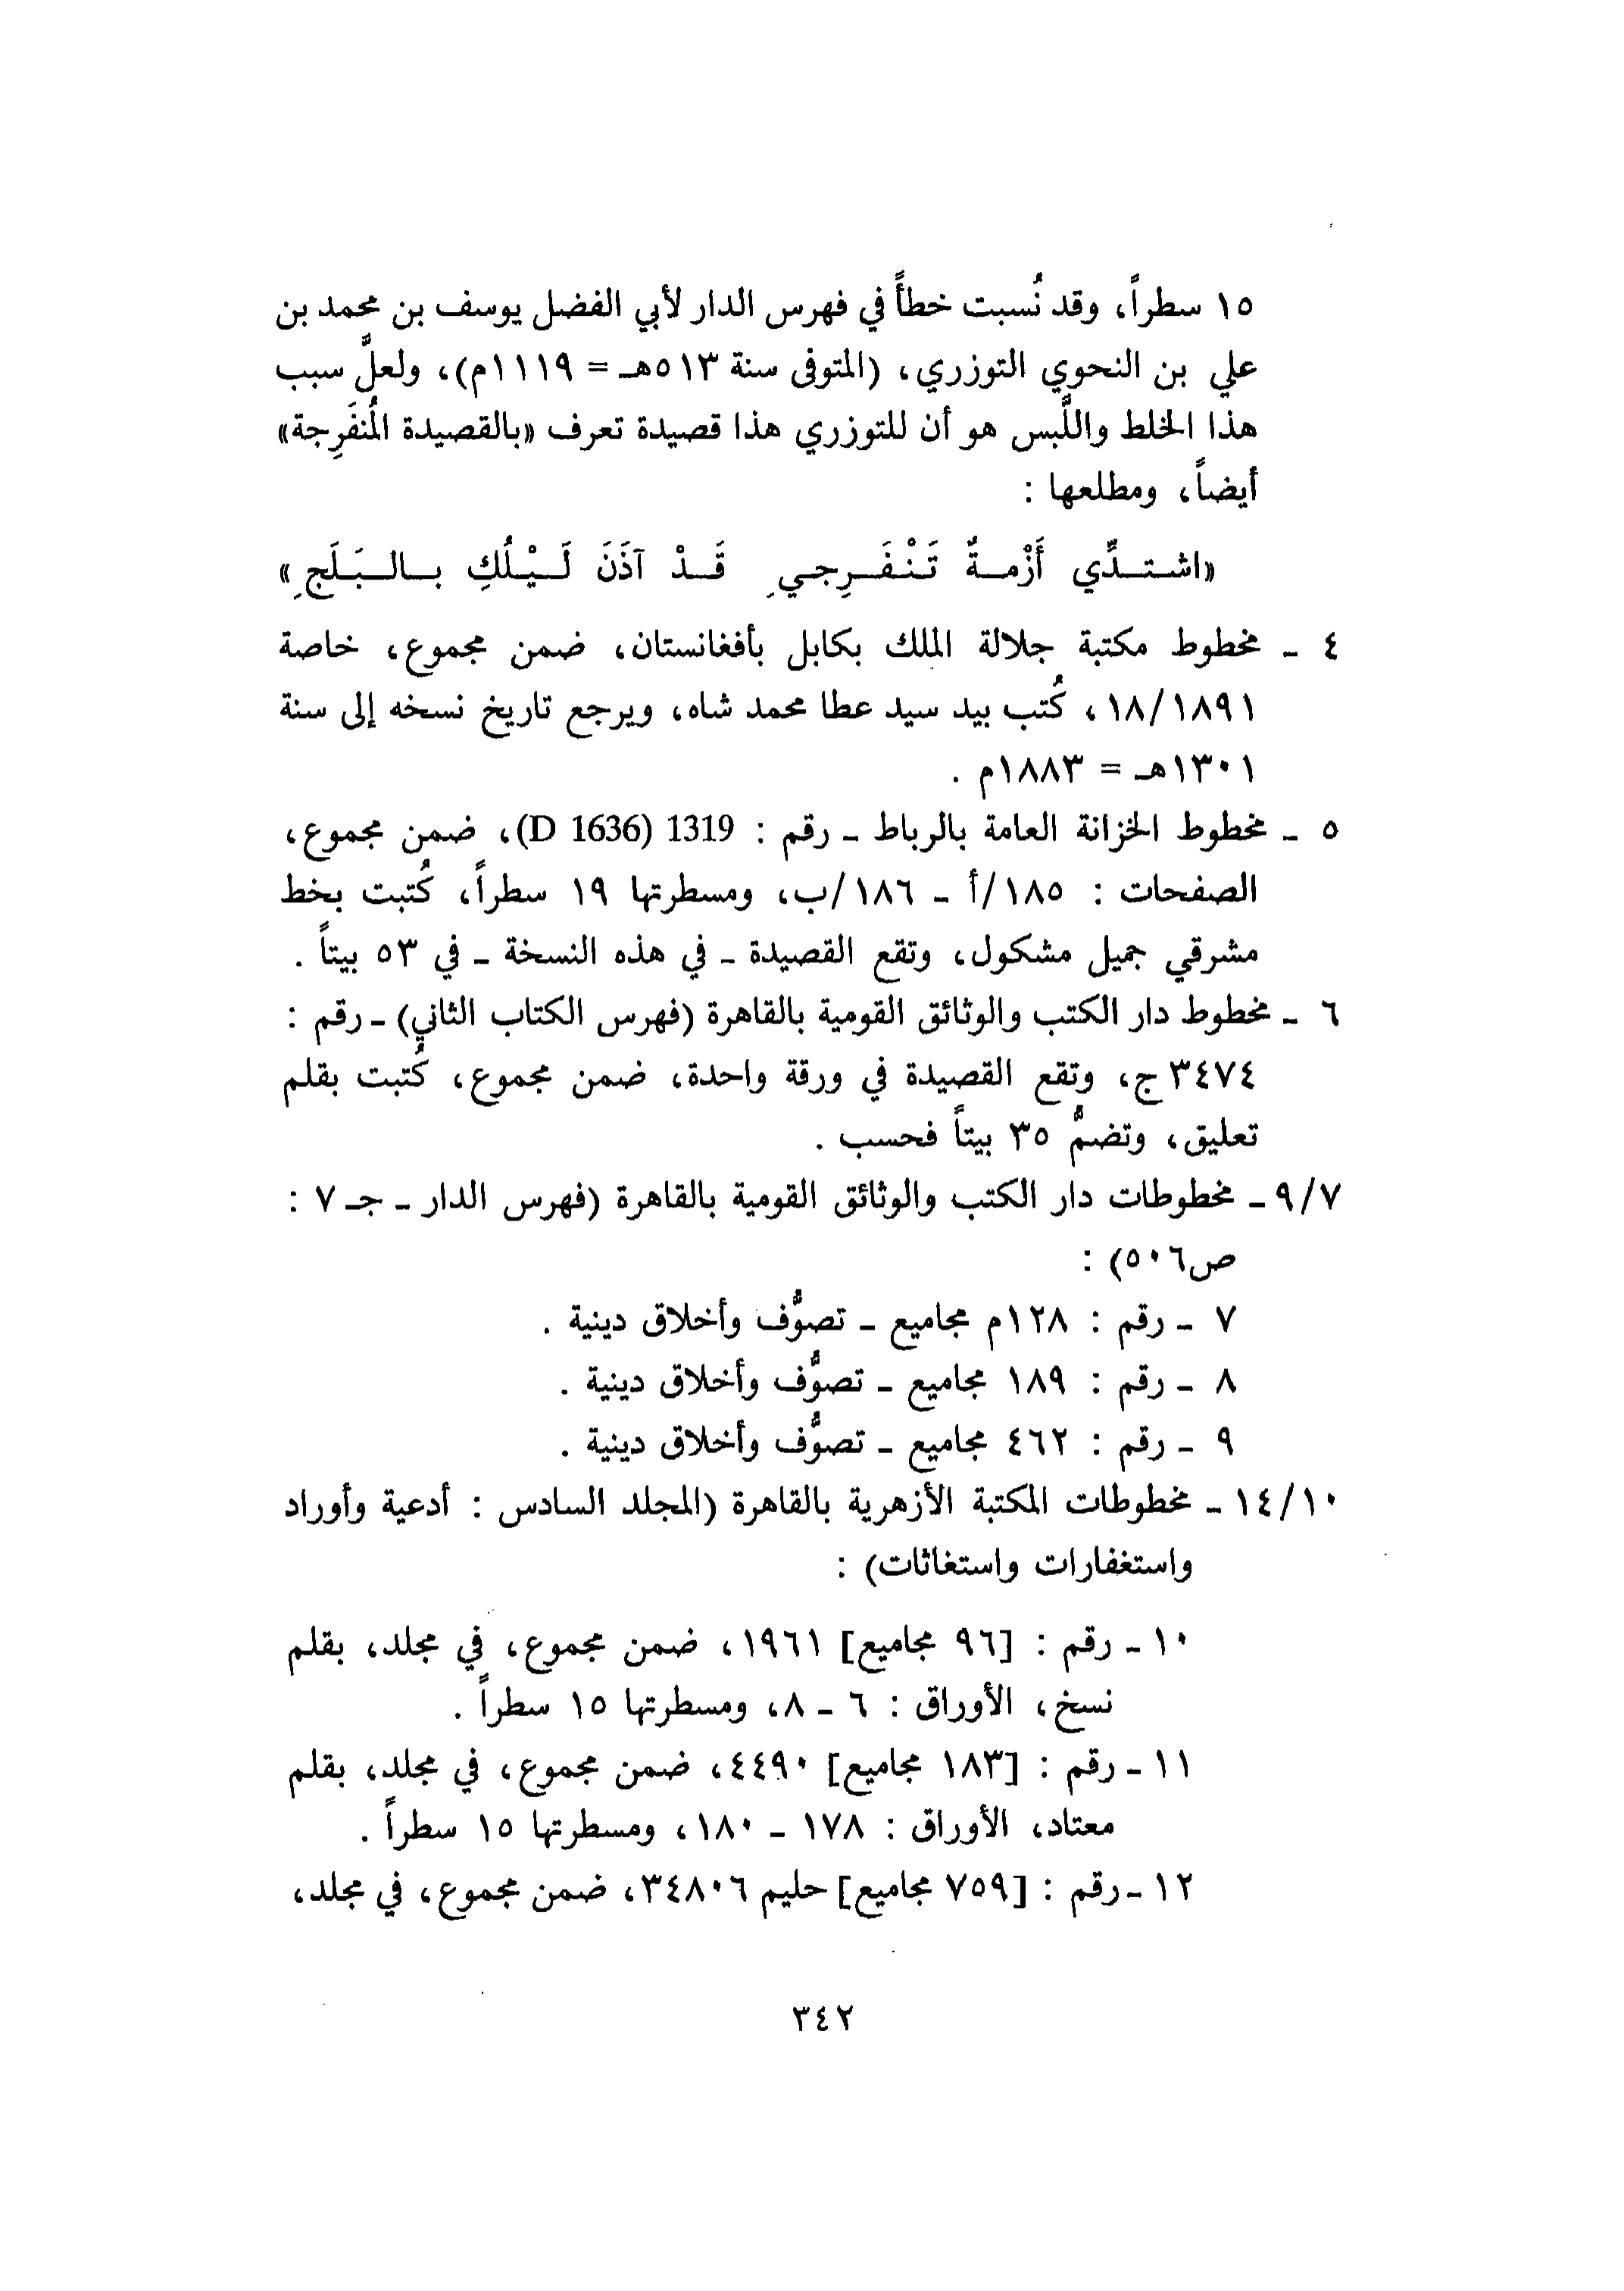 ١٥ سطراً، وقد نُسبت خطأً في فهرس الدار لأبي الفضل يوسف بن محمد بن
علي بن النحوي التوزري، (المتوفى سنة ٥١٣هـ = ١١١٩م)، ولعلَّ سبب
هذا الخلط واللَّبس هو أن للتوزري هذا قصيدة تعرف «بالقصيدة المُنفَرِجة»
أيضاً، ومطلعها :
«اشـتـــدِّي أَزْمــةٌ تَـنْـفَــرِجـي قَــدْ آذَنَ لَـيْـلُكِ بــالــبَـلَجِ»
٤ ـ مخطوط مكتبة جلالة الملك بكابل بأفغانستان، ضمن مجموع، خاصة
١٨/١٨٩١، كُتب بيد سيد عطا محمد شاه، ويرجع تاريخ نسخه إلى سنة
١٣٠١هـ = ١٨٨٣م .
٥ ـ مخطوط الخزانة العامة بالرباط ـ رقم : 1319 (D 1636)، ضمن مجموع،
الصفحات : ١٨٥/أ ـ ١٨٦/ب، ومسطرتها ١٩ سطراً، كُتبت بخط
مشرقي جميل مشكول، وتقع القصيدة ـ في هذه النسخة ـ في ٥٣ بيتاً .
٦ ـ مخطوط دار الكتب والوثائق القومية بالقاهرة (فهرس الكتاب الثاني) ـ رقم :
٣٤٧٤ج، وتقع القصيدة في ورقة واحدة، ضمن مجموع، كُتبت بقلم
تعليق، وتضمُّ ٣٥ بيتاً فحسب .
٩/٧ ـ مخطوطات دار الكتب والوثائق القومية بالقاهرة (فهرس الدار ـ جـ ٧ :
ص٥٠٦) :
٧ ـ رقم : ١٢٨م مجاميع ـ تصوُّف وأخلاق دينية .
٨ ـ رقم : ١٨٩ مجاميع ـ تصوُّف وأخلاق دينية .
٩ ـ رقم : ٤٦٢ مجاميع ـ تصوُّف وأخلاق دينية .
١٤/١٠ ـ مخطوطات المكتبة الأزهرية بالقاهرة (المجلد السادس : أدعية وأوراد
واستغفارات واستغاثات) :
١٠ ـ رقم : [٩٦ مجاميع] ١٩٦١، ضمن مجموع، في مجلد، بقلم
نسخ، الأوراق : ٦ ـ ٨، ومسطرتها ١٥ سطراً .
١١ ـ رقم : [١٨٣ مجاميع] ٤٤٩٠، ضمن مجموع، في مجلد، بقلم
معتاد، الأوراق : ١٧٨ ـ ١٨٠، ومسطرتها ١٥ سطراً .
١٢ ـ رقم : [٧٥٩ مجاميع] حليم ٣٤٨٠٦، ضمن مجموع، في مجلد،
٣٤٢